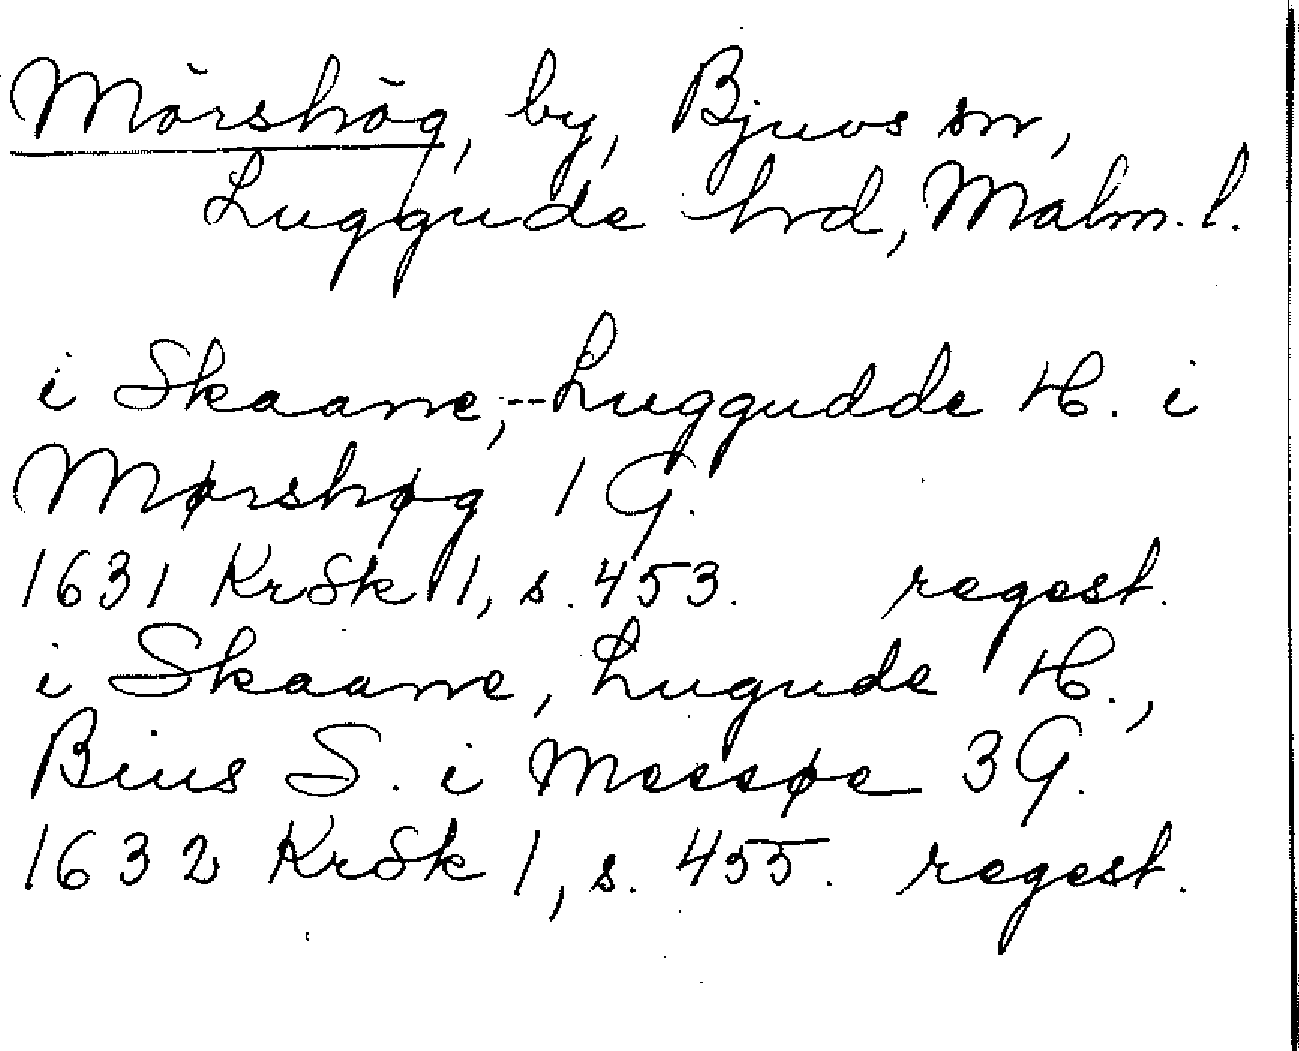 Mörshög, by, Bjuvs sn,
Luggude hrd, Malm. l.
i Skaane,--Luggudde H. i
Mørshøg 1 G.
1631 KrSk 1, s. 453. regest.
i Skaane, Lugude H.,
Bius S. i Messøe 3 G.
1632 KrSk 1, s. 455. regest.